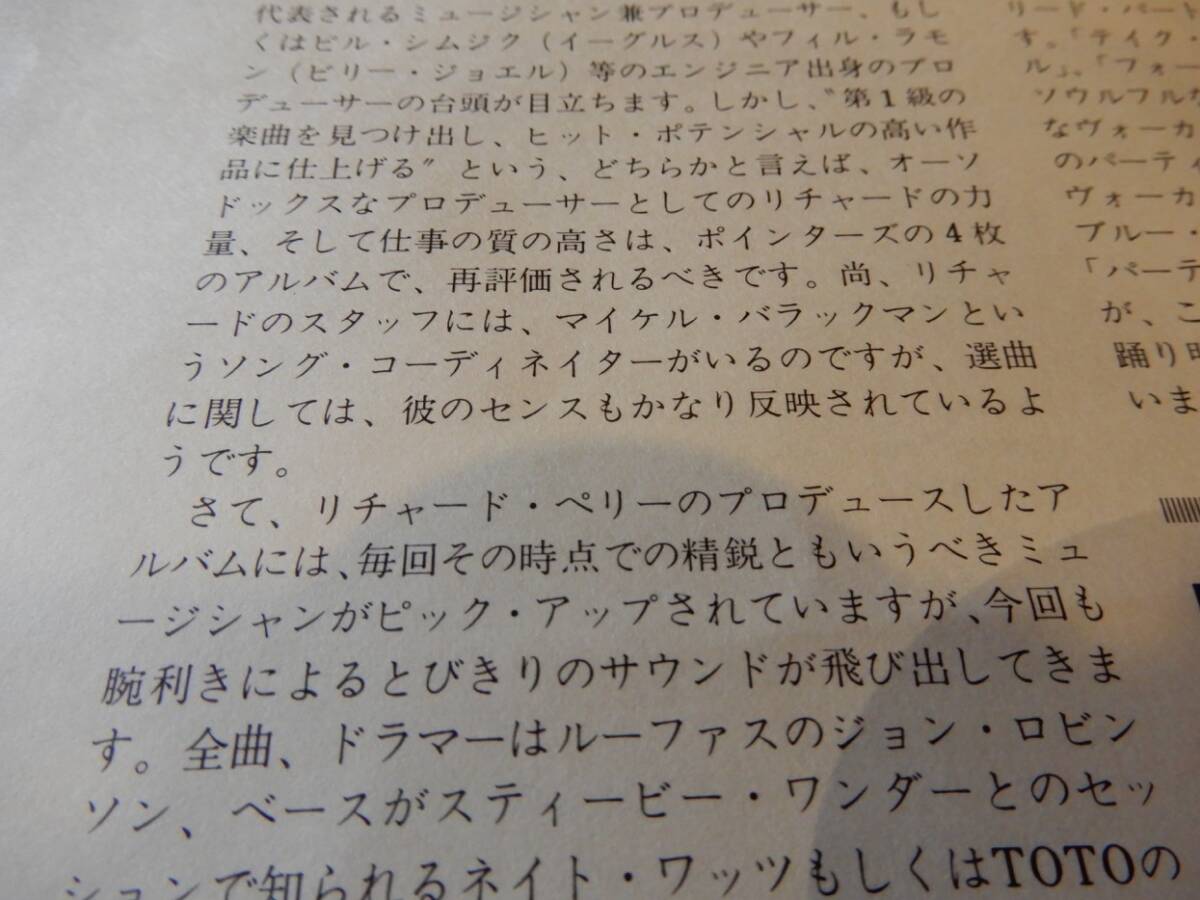 代表されるミュージシャン兼プロデューサー、もし
くはビル・シムジク（イーグルス）やフィル・ラモ
ン（ビリー・ジョエル）等のエンジニア出身のプロ
デューサーの台頭が目立ちます。しかし、〝第1級の
楽曲を見つけ出し、ヒット・ポテンシャルの高い作
品に仕上げる〟という、どちらかと言えば、オーソ
ドックスなプロデューサーとしてのリチャードの力
量、そして仕事の質の高さは、ポインターズの4枚
のアルバムで、再評価されるべきです。尚、リチャ
ードのスタッフには、マイケル・バラックマンとい
うソング・コーディネイターがいるのですが、選曲
に関しては、彼のセンスもかなり反映されているよ
うです。
さて、リチャード・ペリーのプロデュースしたア
ルバムには、毎回その時点での精鋭ともいうべきミュ
ージシャンがピック・アップされていますが、今回も
腕利きによるとびきりのサウンドが飛び出してきま
す。全曲、ドラマーはルーファスのジョン・ロビン
ソン、ベースがスティービー・ワンダーとのセッ
ションで知られるネイト・ワッツもしくはTOTOの
リード・パート
す。「テイク・
ル」、「フォー
ソウルフルな
なヴォーカ
のパーティ
ヴォーカ
ブルー・
「パーテ
が、こ
踊り明
いま